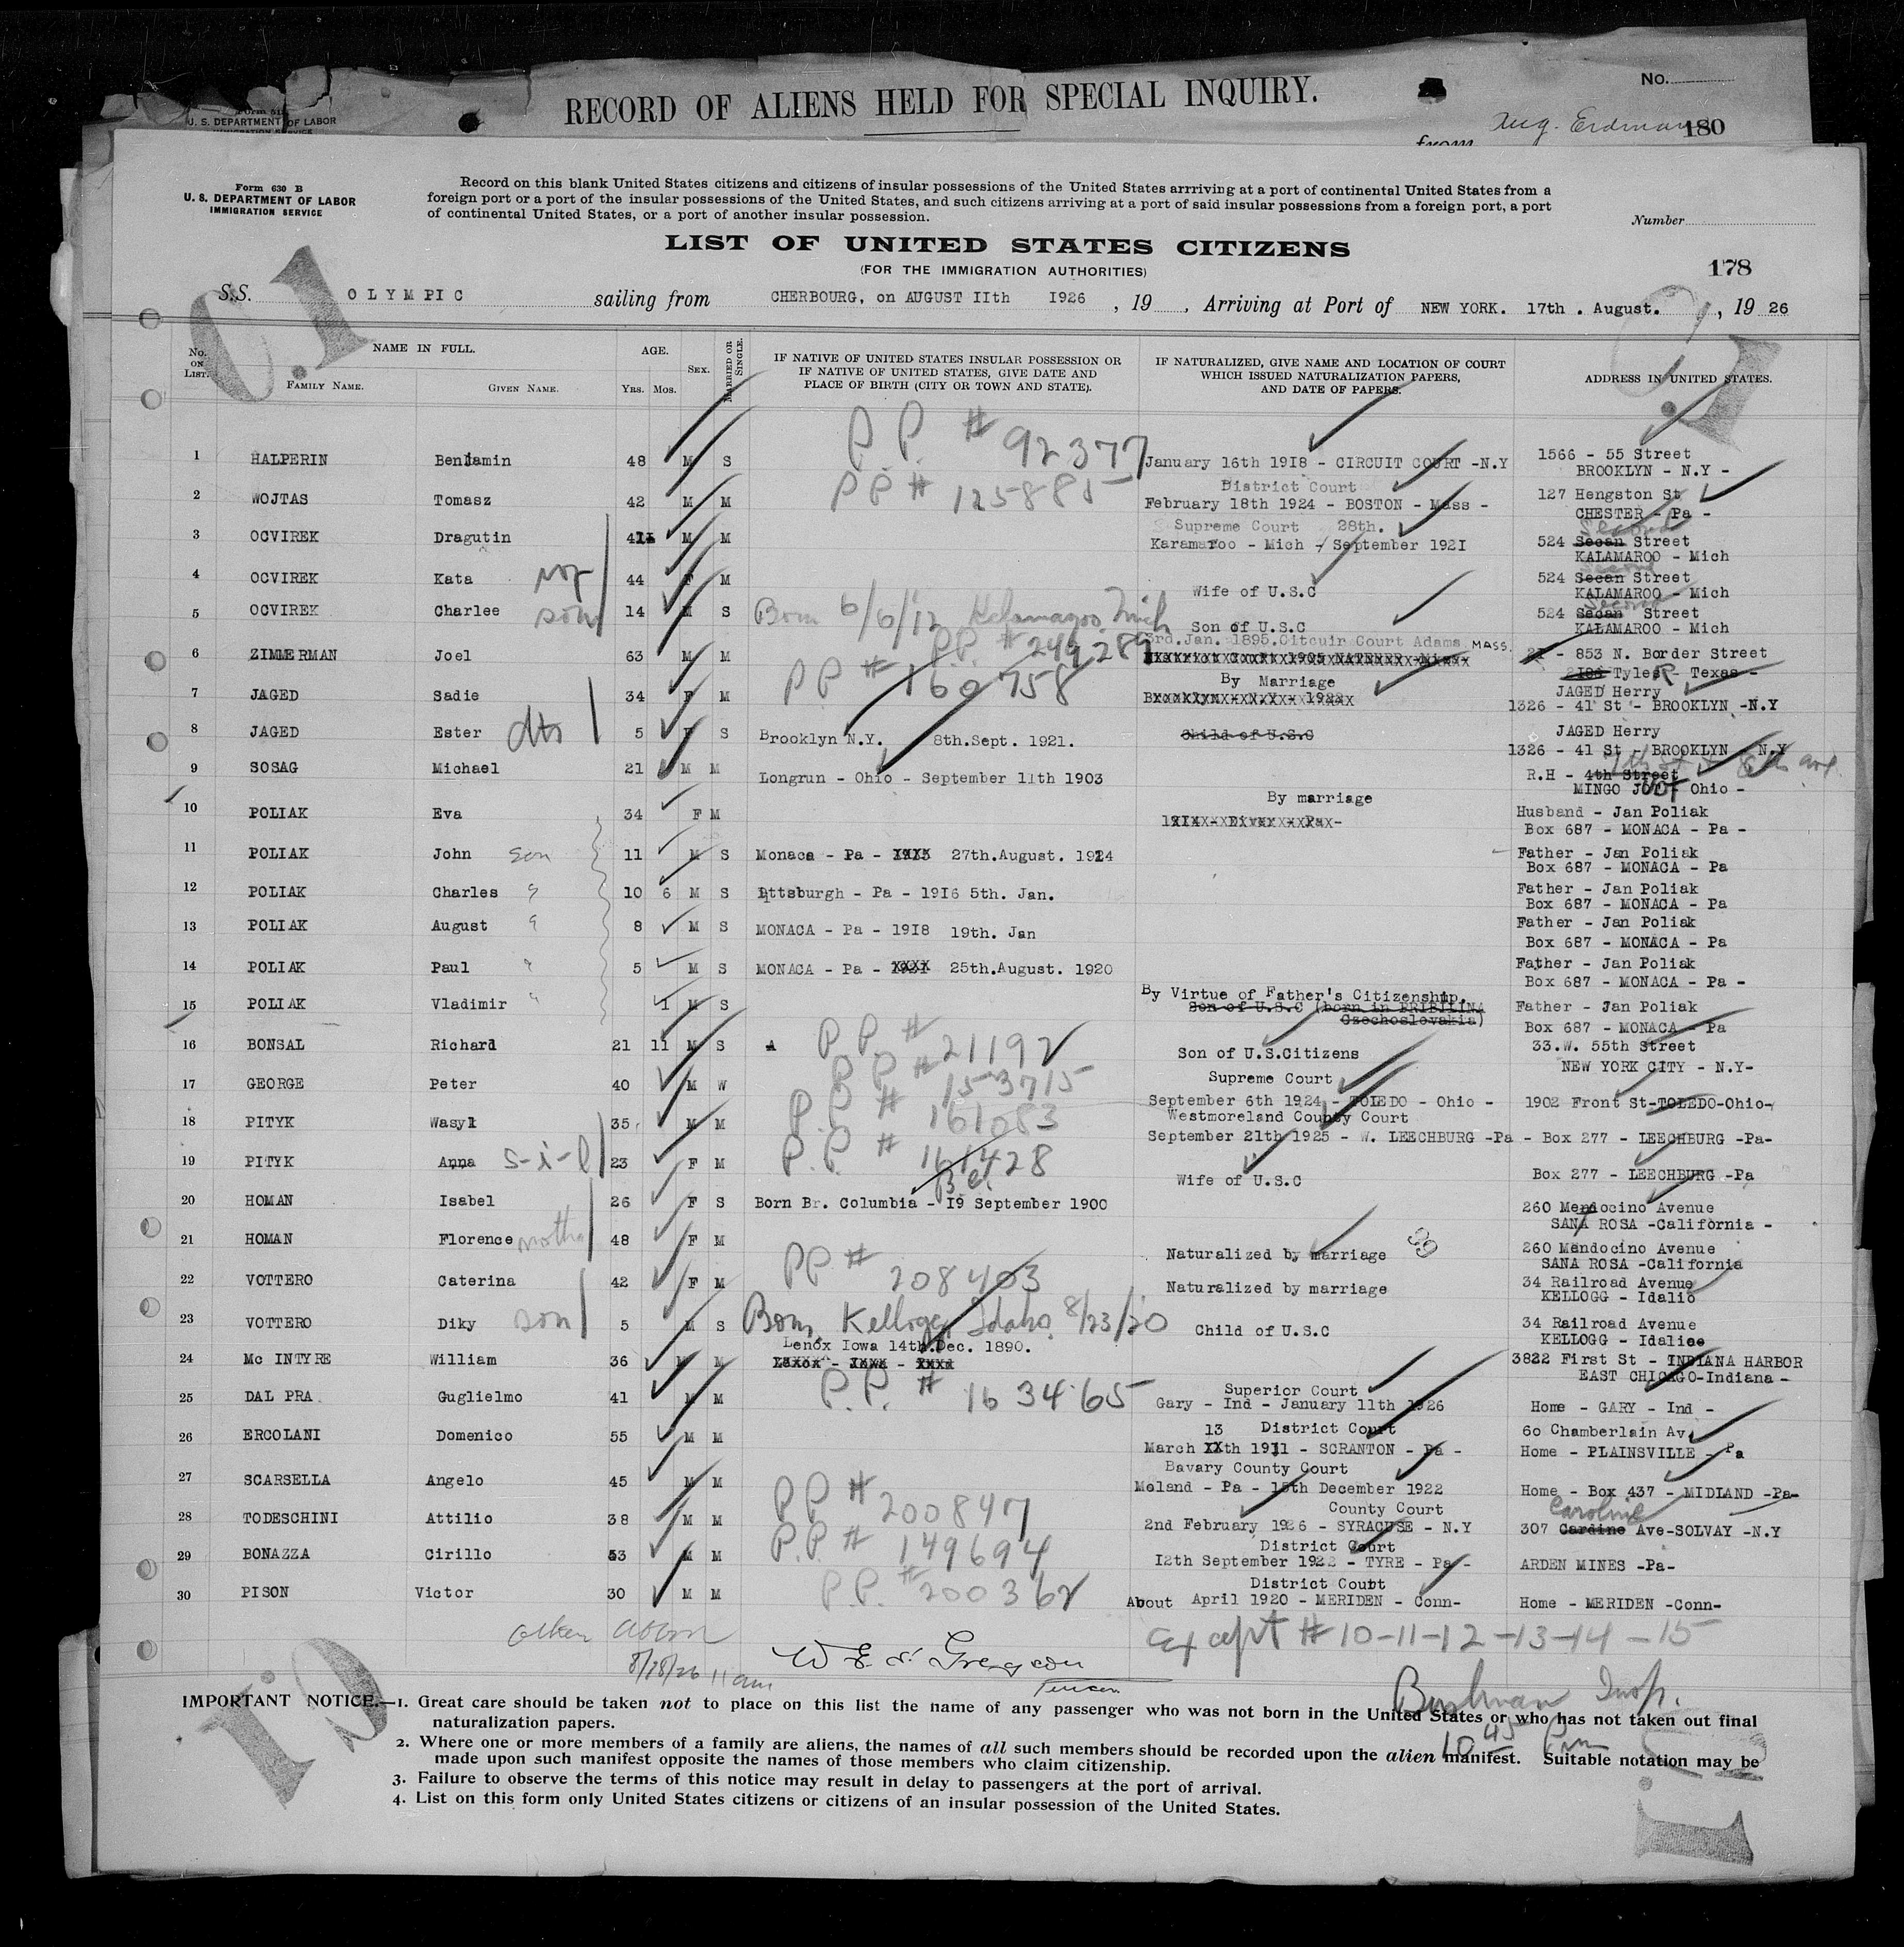 Form 611
U. S. DEPARTMENT OF LABOR
IMMIGRATION SERVICE
RECORD OF ALIENS HELD FOR SPECIAL INQUIRY.
No.
Aug. Erdmann
180
from
Form 630 B
U. S. DEPARTMENT OF LABOR
IMMIGRATION SERVICE
Record on this blank United States citizens and citizens of insular possessions of the United States arrriving at a port of continental United States from a
foreign port or a port of the insular possessions of the United States, and such citizens arriving at a port of said insular possessions from a foreign port, a port
of continental United States, or a port of another insular possession.
Number
LIST OF UNITED STATES CITIZENS
(FOR THE IMMIGRATION AUTHORITIES)
178
S.S. OLYMPIC sailing from CHERBOURG, on AUGUST IIth I926, 19 , Arriving at Port of NEW YORK. 17th . August. , 19 26
No. ON LIST.
NAME IN FULL.
FAMILY NAME.
GIVEN NAME.
AGE.
Yrs. Mos.
SEX.
MARRIED OR SINGLE.
IF NATIVE OF UNITED STATES INSULAR POSSESSION OR
IF NATIVE OF UNITED STATES, GIVE DATE AND
PLACE OF BIRTH (CITY OR TOWN AND STATE).
IF NATURALIZED, GIVE NAME AND LOCATION OF COURT
WHICH ISSUED NATURALIZATION PAPERS,
AND DATE OF PAPERS.
ADDRESS IN UNITED STATES.
1 HALPERIN Benjamin 48 M S P.P. # 92377 January 16th 19I8 - CIRCUIT COURT -N.Y 1566 - 55 Street
BROOKLYN - N.Y -
2 WOJTAS Tomasz 42 M M PP# 125885 District Court
February 18th 1924 - BOSTON - Mass - 127 Hengston St
CHESTER - Pa -
3 OCVIREK Dragutin 41 M M Supreme Court 28th.
Karamaroo - Mich - September 192I 524 Secan Second Street
KALAMAROO - Mich
4 OCVIREK Kata 44 F M Wife of U.S.C 524 Secan Second Street
KALAMAROO - Mich
5 OCVIREK Charlee son 14 M S Born 6/6/12 Kalamazoo Mich Son of U.S.C 524 Secan Second Street
KALAMAROO - Mich
6 ZIMMERMAN Joel 63 M M P.P. # 249289 3rd.Jan. 1895.Citcuir Court Adams MASS. 21 - 853 N. Border Street
Tyler - Texas -
7 JAGED Sadie 34 F M PP # 160758 By Marriage
Brooklyn - N.Y - 1922 JAGED Herry
1326 - 41 St - BROOKLYN -N.Y
8 JAGED Ester dto 5 F S Brooklyn N.Y. 8th.Sept. 1921. Child of U.S.C JAGED Herry
1326 - 41 St - BROOKLYN - N.Y
9 SOSAG Michael 21 M M Longrun - Ohio - September 11th 1903 R.H - 4th Street
MINGO Ohio -
10 POLIAK Eva 34 F M By marriage Husband - Jan Poliak
Box 687 - MONACA - Pa -
11 POLIAK John son 11 M S Monaca - Pa - 27th.August. 1914 Father - Jan Poliak
Box 687 - MONACA - Pa
12 POLIAK Charles " 10 6 M S Pittsburgh - Pa - 19I6 5th. Jan. Father - Jan Poliak
Box 687 - MONACA - Pa
13 POLIAK August " 8 M S MONACA - Pa - 19I8 19th. Jan Father - Jan Poliak
Box 687 - MONACA - Pa
14 POLIAK Paul " 5 M S MONACA - Pa - 1921 25th.August. 1920 Father - Jan Poliak
Box 687 - MONACA - Pa -
15 POLIAK Vladimir " 1 M S By Virtue of Father's Citizenship.
Son of U.S.C (born in PRIBILINA
Czechoslovakia) Father - Jan Poliak
Box 687 - MONACA - Pa
16 BONSAL Richard 21 11 M S P.P # 21192 Son of U.S.Citizens 33.W. 55th Street
NEW YORK CITY - N.Y-
17 GEORGE Peter 40 M W P.P # 153715 Supreme Court
September 6th 1924 - TOLEDO - Ohio - 1902 Front St-TOLEDO-Ohio-
18 PITYK Wasyl 35 M M P.P # 161083 Westmoreland County Court
September 21th 1925 - W. LEECHBURG -Pa - Box 277 - LEECHBURG -Pa-
19 PITYK Anna s-i-l 23 F M P.P. # 161428 Wife of U.S.C Box 277 - LEECHBURG -Pa
20 HOMAN Isabel 26 F S B.C. Born Br. Columbia - I9 September 1900 260 Mendocino Avenue
SANTA ROSA -California -
21 HOMAN Florence mother 48 F M Naturalized by marriage 260 Mendocino Avenue
SANA ROSA -California
22 VOTTERO Caterina 42 F M PP # 208403 Naturalized by marriage 34 Railroad Avenue
KELLOGG - Idalio
23 VOTTERO Diky son 5 M S Born Kellogg, Idaho 8/23/20 Child of U.S.C 34 Railroad Avenue
KELLOGG - Idalioe
24 Mc INTYRE William 36 M M Lenox Iowa 14th.Dec. 1890. 3822 First St - INDIANA HARBOR
EAST CHICAGO-Indiana -
25 DAL PRA Guglielmo 41 M M P.P. # 163465 Superior Court
Gary - Ind - January 11th 1926 Home - GARY - Ind -
26 ERCOLANI Domenico 55 M M 13 District Court
March XXth 1911 - SCRANTON - Pa - 60 Chamberlain Av.
Home - PLAINSVILLE - Pa
27 SCARSELLA Angelo 45 M M Bavary County Court
Moland - Pa - 15th December 1922 Home - Box 437 - MIDLAND -Pa-
28 TODESCHINI Attilio 38 M M P.P # 200847 County Court
2nd February 1926 - SYRACUSE - N.Y 307 Cardine Caroline Ave-SOLVAY -N.Y
29 BONAZZA Cirillo 53 M M P.P. # 149694 District Court
I2th September 1922 - TYRE - Pa - ARDEN MINES -Pa-
30 PISON Victor 30 M M P.P. # 200362 District Court
About April 1920 - MERIDEN - Conn- Home - MERIDEN -Conn-
8/18/26 11 am
Except # 10-11-12-13-14-15
Insp.
10 45 Pm
IMPORTANT NOTICE.—1. Great care should be taken not to place on this list the name of any passenger who was not born in the United States or who has not taken out final
naturalization papers.
2. Where one or more members of a family are aliens, the names of all such members should be recorded upon the alien manifest. Suitable notation may be
made upon such manifest opposite the names of those members who claim citizenship.
3. Failure to observe the terms of this notice may result in delay to passengers at the port of arrival.
4. List on this form only United States citizens or citizens of an insular possession of the United States.